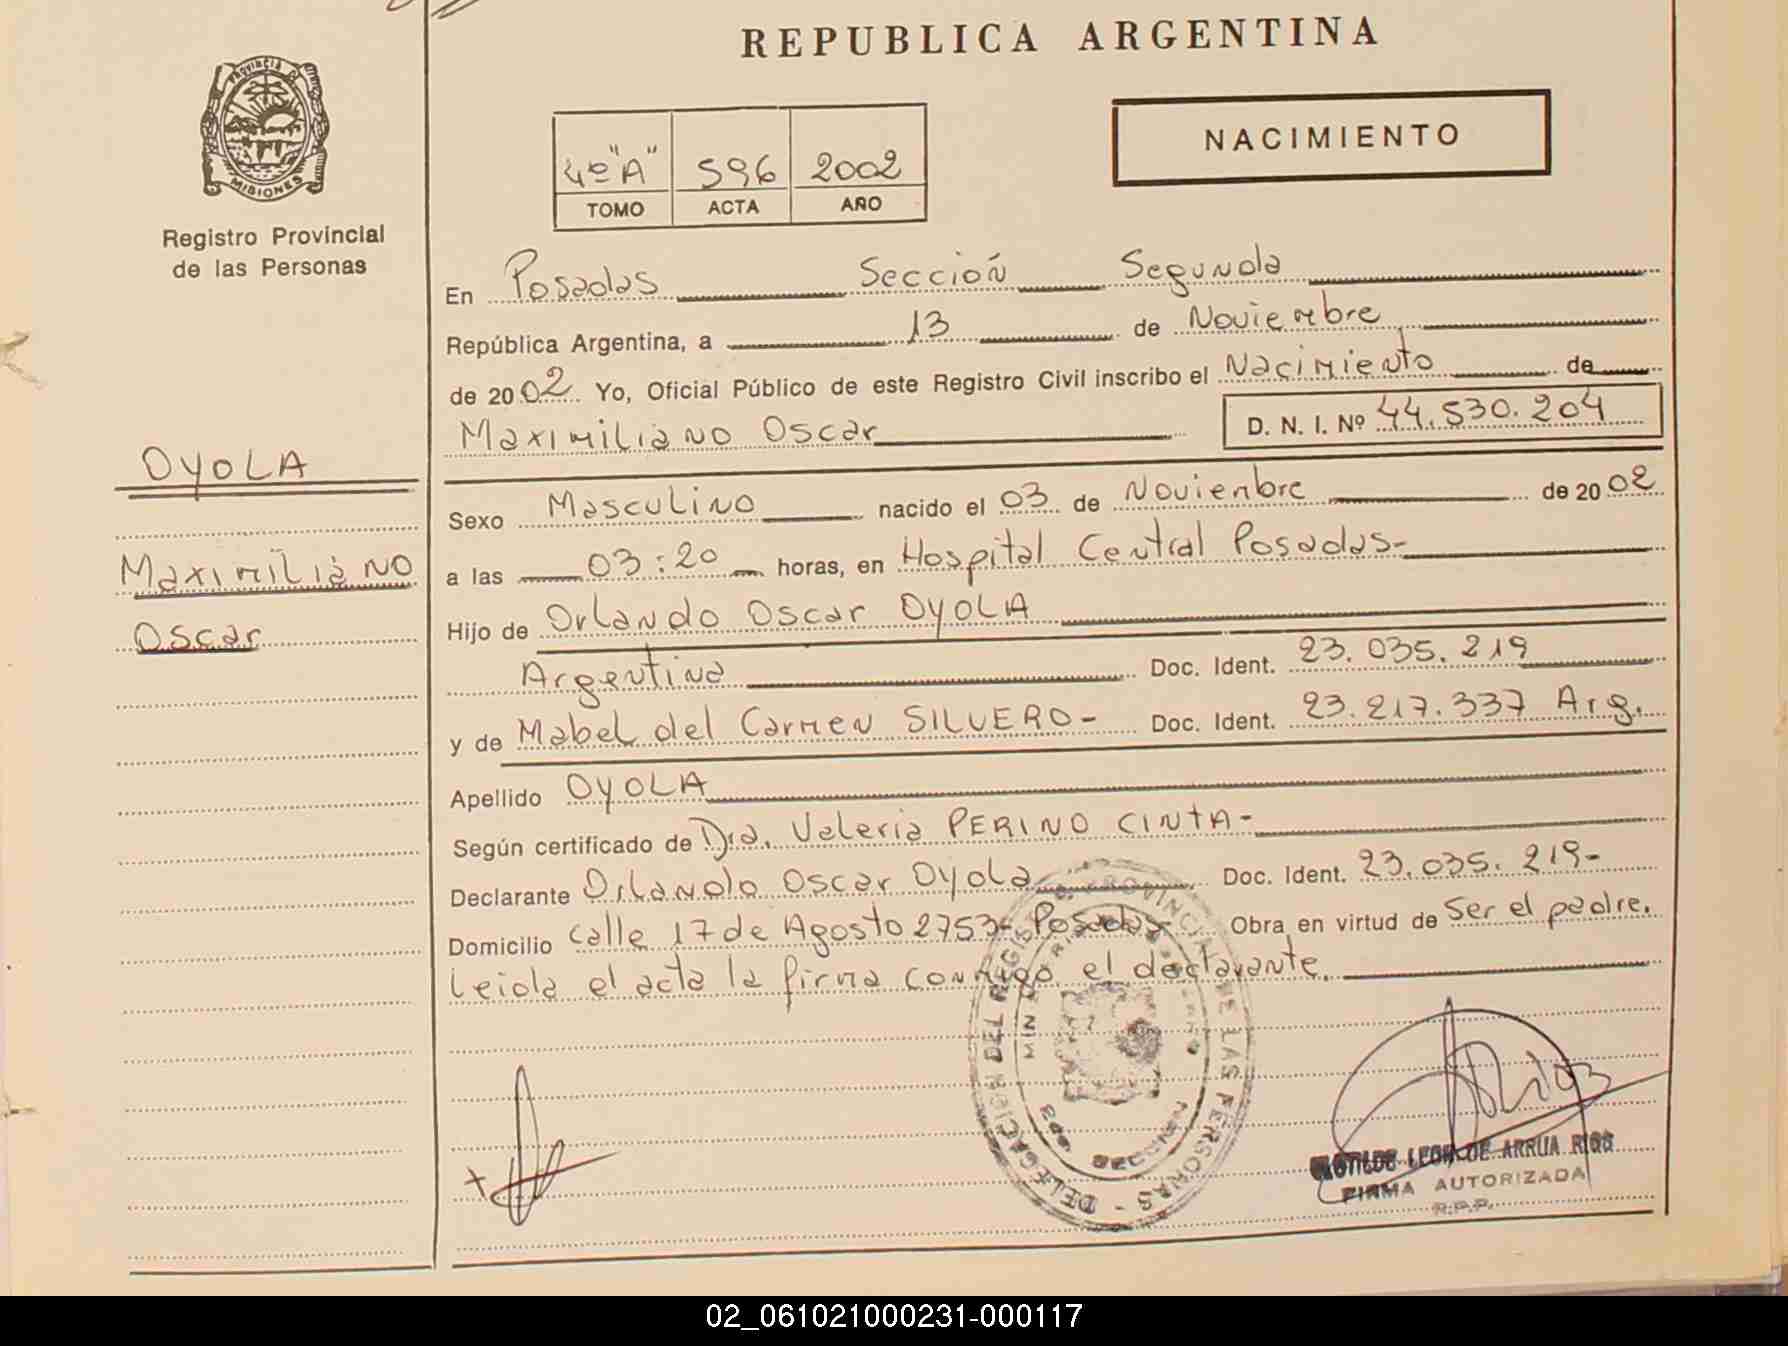 REPUBLICA ARGENTINA
PROVINCIA D
MISIONES
Registro Provincial
de las Personas
4º "A" 596 2002
TOMO ACTA AÑO
NACIMIENTO
En Posadas Sección Segunda
República Argentina, a 13 de Noviembre
de 2002 Yo, Oficial Público de este Registro Civil inscribo el Nacimiento de
Maximiliano Oscar D. N. I. Nº 44.530.204
OYOLA
Maximiliano
Oscar
Sexo Masculino nacido el 03 de Noviembre de 2002
a las 03:20 horas, en Hospital Central Posadas-
Hijo de Orlando Oscar OYOLA
Argentina Doc. Ident. 23.035.219
y de Mabel del Carmen SILVERO- Doc. Ident. 23.217.337 Arg.
Apellido OYOLA
Según certificado de Dra. Valeria PERINO CINTA-
Declarante Orlando Oscar Oyola Doc. Ident. 23.035.219-
Domicilio calle 17 de Agosto 2753- Posadas Obra en virtud de Ser el padre.
Leida el acta la firma conmigo el declarante.
DELEGACION DEL REGISTRO PROVINCIAL DE LAS PERSONAS -
LEOR DE ARRUA RIOS
FIRMA AUTORIZADA
R.P.P.
02_061021000231-000117